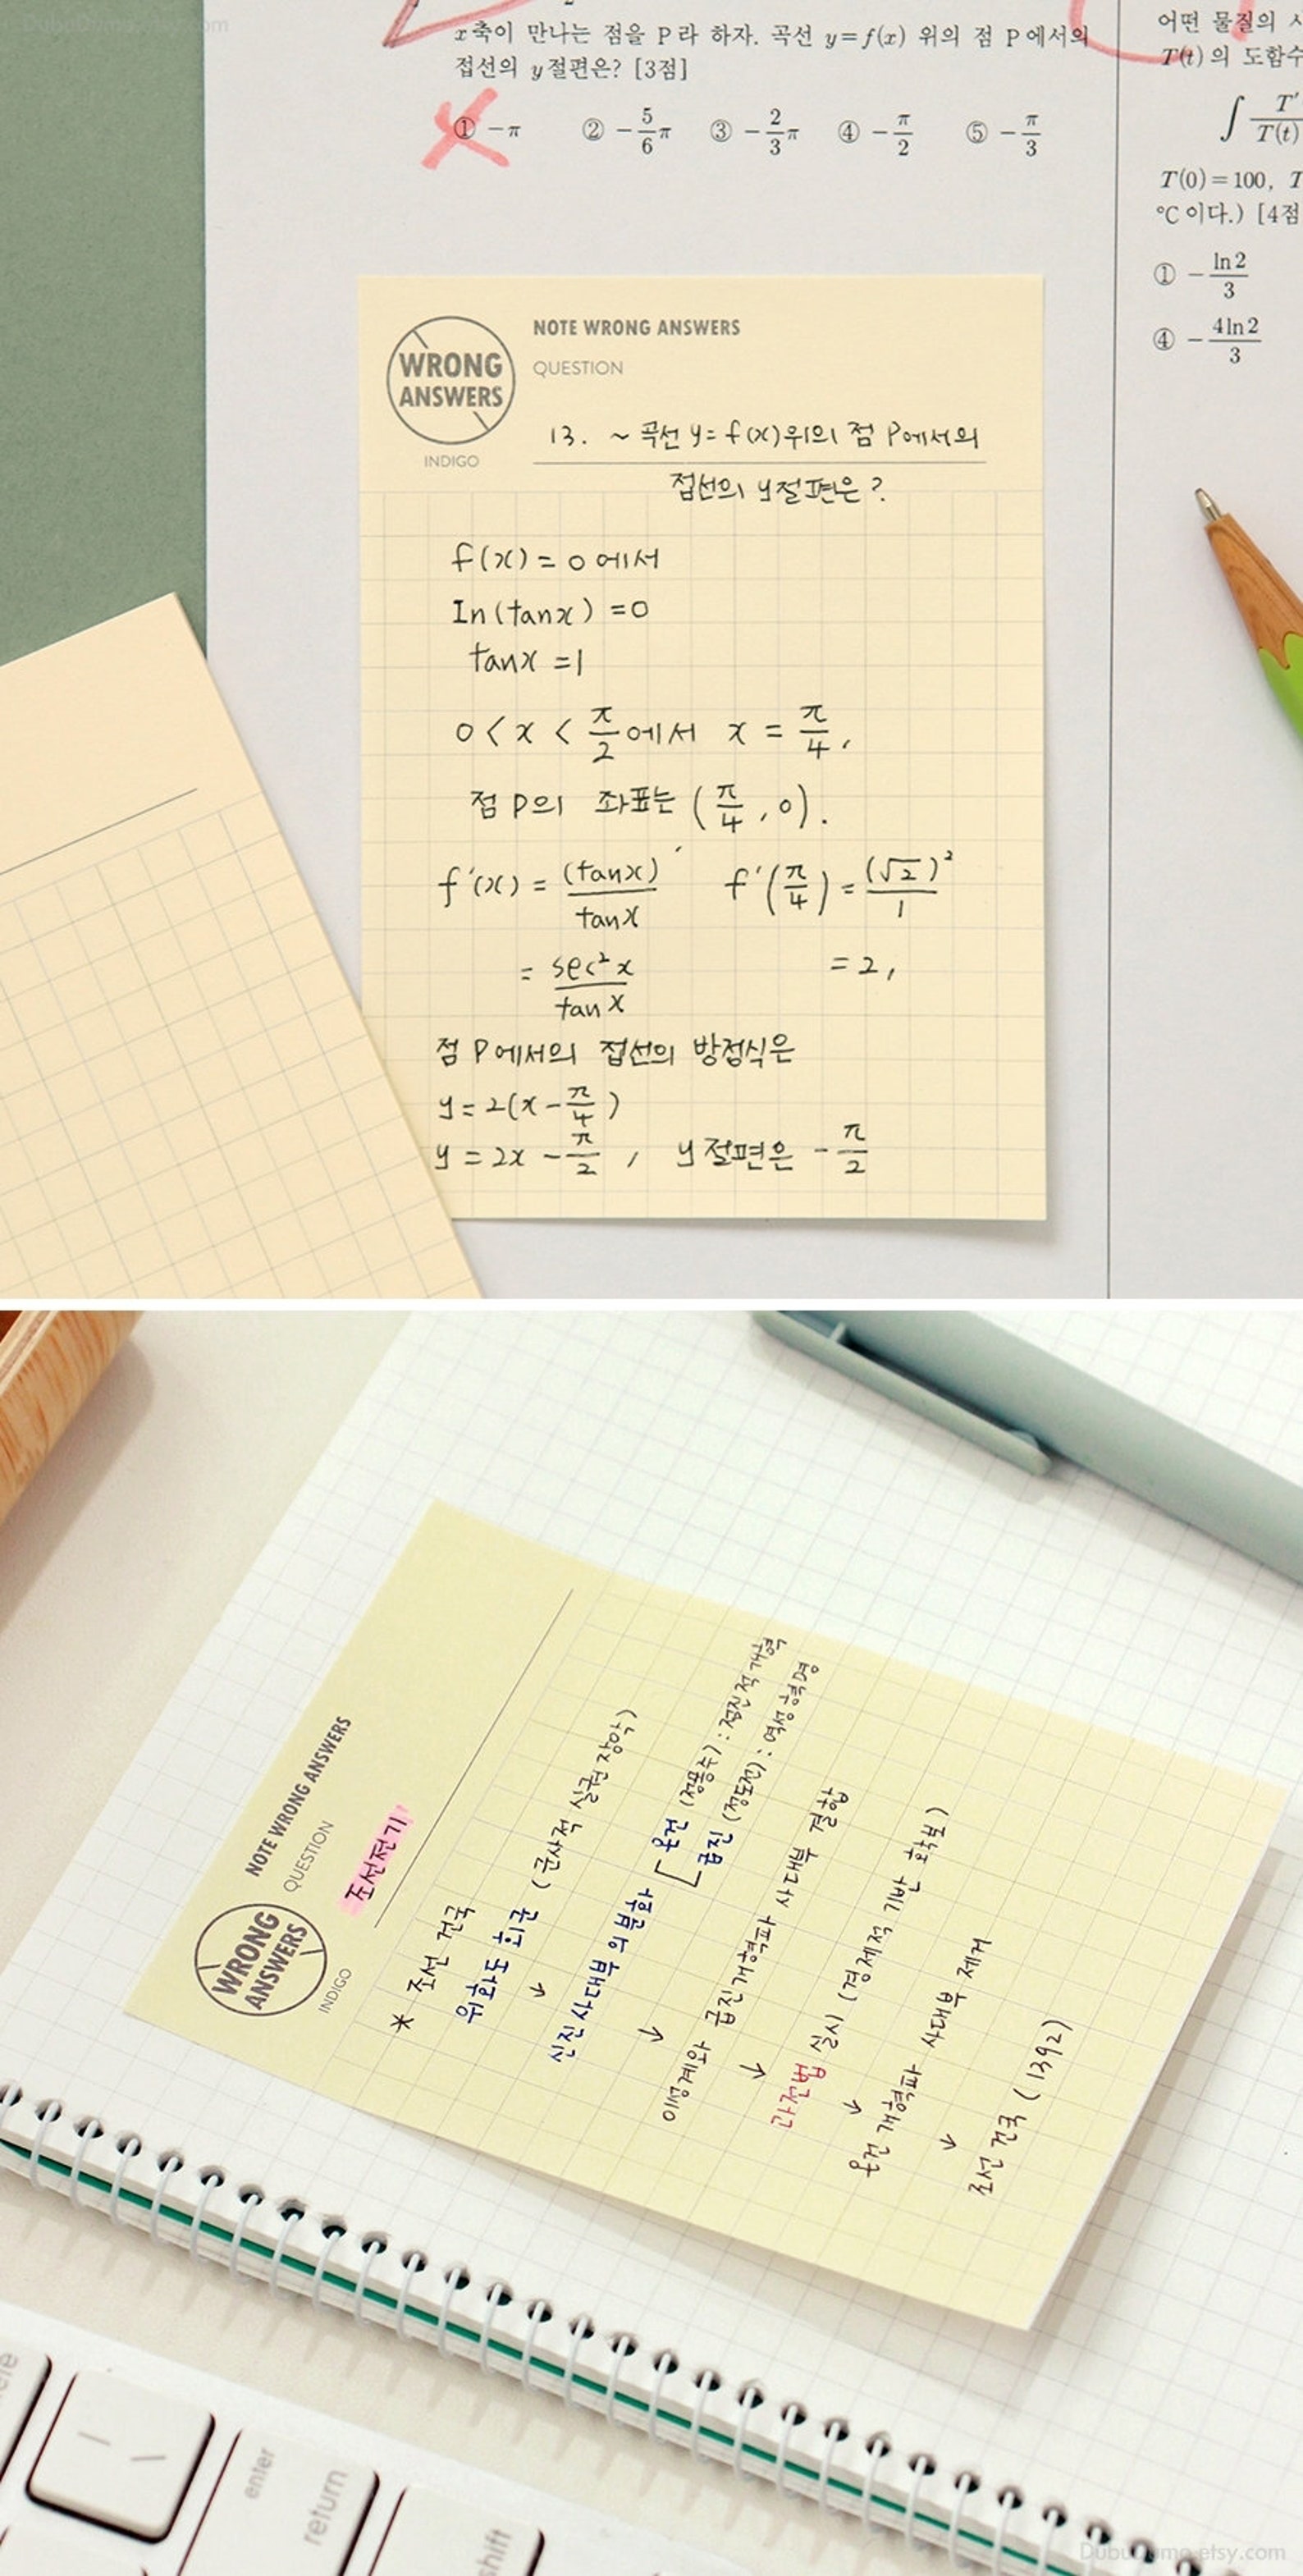 DubuDumo.etsy.com
x축이 만나는 점을 P라 하자. 곡선 y=f(x) 위의 점 P에서의
접선의 y절편은? [3점]
① -π ② -5/6π ③ -2/3π ④ -π/2 ⑤ -π/3
어떤 물질의
T(t)의 도함수
∫ T'/T(t)
T(0)=100, T
°C이다.) [4점
① -ln2/3
④ -4ln2/3
WRONG
ANSWERS
INDIGO
NOTE WRONG ANSWERS
QUESTION
13. ~ 곡선 y=f(x)위의 점 P에서의
접선의 y절편은?
f(x)=0에서
In(tanx)=0
tanx=1
0<x<π/2에서 x=π/4,
점 P의 좌표는 (π/4, 0).
f'(x)=(tanx)'/tanx f'(π/4)=(√2)²/1
=sec²x/tanx =2,
점 P에서의 접선의 방정식은
y=2(x-π/4)
y=2x-π/2, y절편은 -π/2
NOTE WRONG ANSWERS
QUESTION
WRONG
ANSWERS
INDIGO
조선전기
* 조선 건국
위화도 회군 (군사적 실권 장악)
↓
신진사대부의 분화 [온건 (정몽주) : 점진적 개혁
급진 (정도전) : 역성혁명
↓
이성계와 급진개혁파 사대부 결합
↓
과전법 실시 (경제적 기반 확보)
↓
온건개혁파 사대부 제거
↓
조선 건국 (1392)
enter
return
shift
DubuDumo.etsy.com